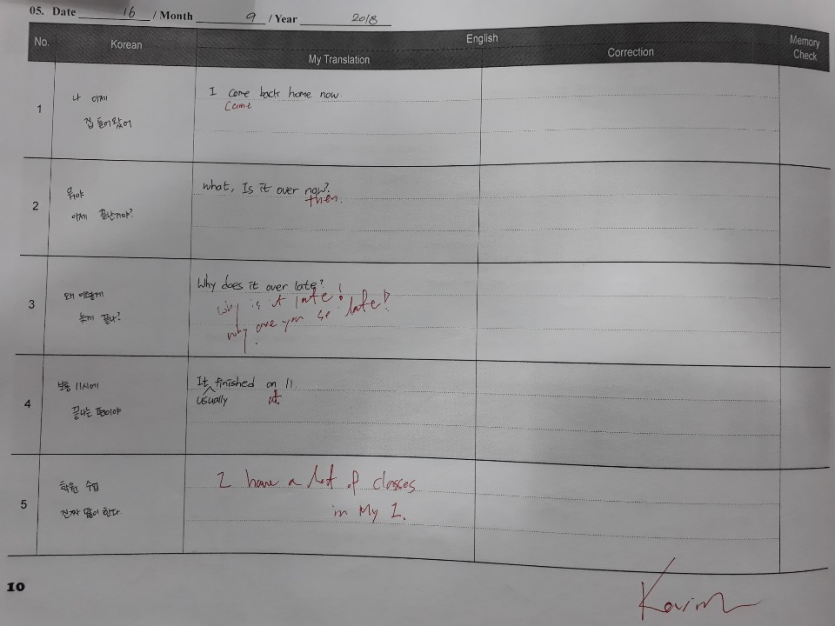 05. Date 16 / Month 9 / Year 2018
No. Korean English Memory Check
My Translation Correction
1
나 이제
집 들어왔어
I come back home now
came
2
뭐야
이제 끝난거야?
What, Is it over now?
then.
3
왜 이렇게
늦게 끝나?
Why does it over late?
Why is it late?
Why are you so late?
4
보통 11시에
끝나는 편이야
It finished on 11.
usually at.
5
학원 수업
진짜 많이 한다
I have a lot of classes
in My I.
10
Kevin